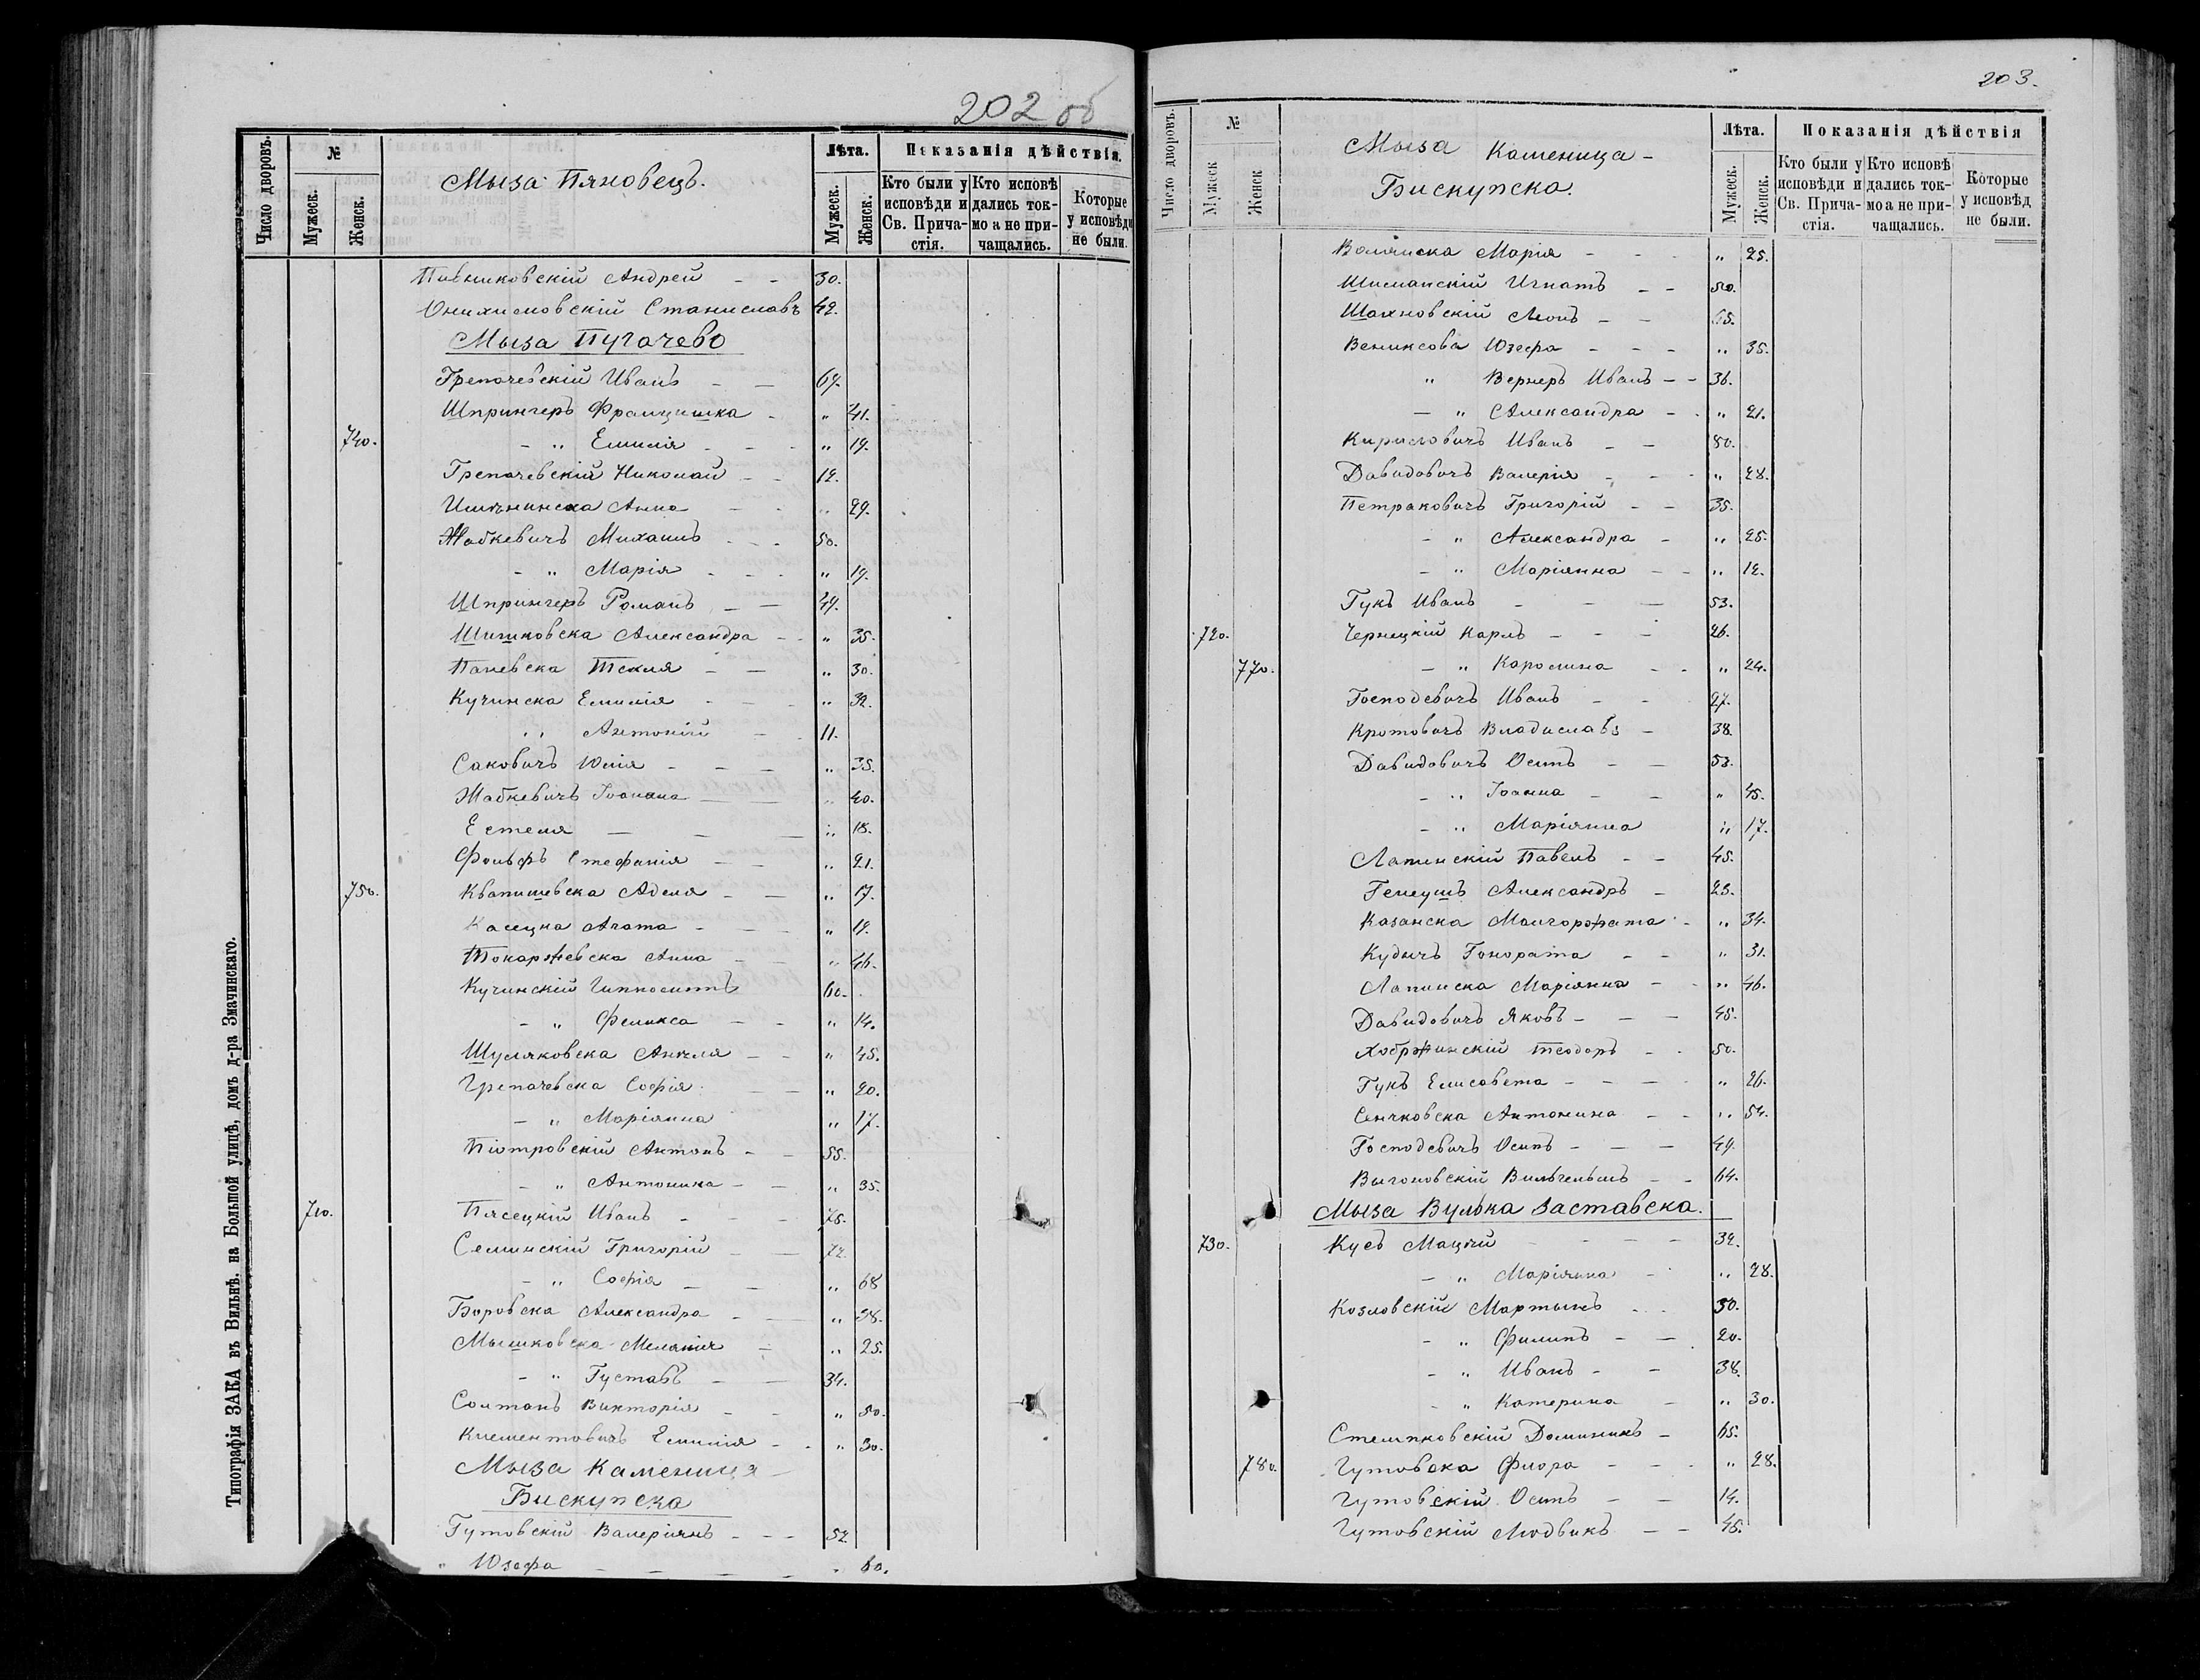 202 об
Число дворовъ.
№
Мужеск.
Женск.
Мыза Пяновецъ.
Лѣта.
Мужеск.
Женск.
Показанія дѣйствія.
Кто были у исповѣди и Св. Причастія.
Кто исповѣдались токмо а не причащались.
Которые у исповѣди не были.
Андрей - - 30.
Станиславъ 42.
Мыза Пугачево
Грепачевскій Иванъ - - 67.
Шпрингеръ Францишка - " 41.
740. - " Емилія - - " 19.
Грепачевскій Николай - - 12.
Анна - - " 29.
Жабкевичъ Михаилъ - - - 50.
- " Марія - - - " 19.
Шпрингеръ Романъ - - 44.
Шишковска Александра - - " 35.
Паневска Текля - - " 30.
Кучинска Емилія - - - " 32.
" Антоній - - 11.
Саковичъ Юлія - - - " 35.
Жабкевичъ Іоанна - - " 40.
Естеля - - - " 18.
Фольфъ Стефанія - - " 21.
750. Квапишевска Аделя - - " 17.
Касецка Агата - - - " 19.
Токаржевска Анна - - " 46.
Кучинскій Гипполитъ 60.
- " Феликса - - " 14.
Шуляковска Анеля - - " 45.
Грепачевска Софія - - " 20.
- " Маріянна " 17.
Піотровскій Антонъ - - 55.
- " Антонина - - " 35.
710. Пясецкій Иванъ - - - 75.
Семинскій Григорій - - 72.
- " Софія - - " 68
Боровска Александра - - " 38.
Мышковска Меланія - " 25.
- " Густавъ - - 34.
Солтанъ Викторія - - " 50.
Клементовичъ Емилія - - " 30.
Мыза Каменица -
Бискупска
Гутовскій Валеріянъ - - - 52
" Юзефа - - - - " 60.
Типографія ЗАКА въ Вильнѣ, на Большой улицѣ, домъ д-ра Змачинскаго.
203.
Число дворовъ.
№
Мужеск
Женск
Мыза Каменица -
Бискупска.
Лѣта.
Мужеск.
Женск.
Показанія дѣйствія
Кто были у исповѣди и Св. Причастія.
Кто исповѣдались токмо а не причащались.
Которые у исповѣд не были.
Волянска Марія - - - " 25.
Шиманскій Игнатъ - - 50.
Шахновскій Леонъ - - 65.
Вениксова Юзефа - - - " 35.
" Вернеръ Иванъ - - 36.
- " Александра - - " 21.
Кириловичъ Иванъ - - 80.
Давидовичъ Валерія - - - " 28.
Петраковичъ Григорій - - 35.
- " Александра - " 25.
- " Маріянна - - " 12.
Гукъ Иванъ - - - 53.
720. Чернецкій Карлъ - - - 26.
770. - " Каролина - - " 24.
Господевичъ Иванъ - - 27.
Кротовичъ Владиславъ - 38.
Давидовичъ Осипъ - - 53.
- " Іоанна - - " 45.
- " Маріянна " 17.
Лапинскій Павелъ - - 45.
Генеушъ Александръ - 23.
Казанска Малгоржата - " 34.
Кудычъ Гонората - - " 31.
Лапинска Маріянна - - " 46.
Давидовичъ Яковъ - - - 45.
Хобржинскій Теодоръ - - 50.
Гукъ Елисавета - - - " 26.
Сенчковска Антонина - - " 54.
Господевичъ Осипъ - - - 44.
Выгоновскій Вильгельмъ - - 64.
Мыза Вулька Заставска.
730. Кусъ Мацѣй - - - - 32.
- " Маріянна - " 28.
Козловскій Мартынъ - - - 50.
- " Филипъ - - 20.
- " Иванъ - - 38.
- " Катерина - " 30.
Стемпковскій Доминикъ - 65.
780. Гутовска Флора - - - " 28.
Гутовскій Осипъ - - 14.
Гутовскій Людвикъ - - 45.